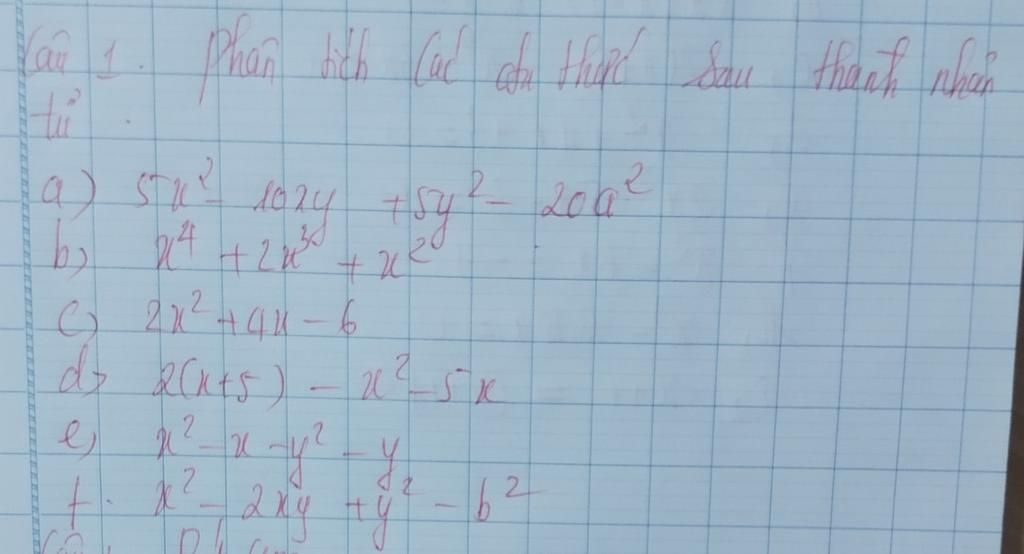 Câu 1. Phân tích các đa thức sau thành nhân
tử.
a) 5x² - 10xy + 5y² - 20a²
b) x⁴ + 2x³ + x²
c) 2x² + 4x - 6
d) 2(x+5) - x² - 5x
e) x² - x - y² - y
f. x² - 2xy + y² - b²